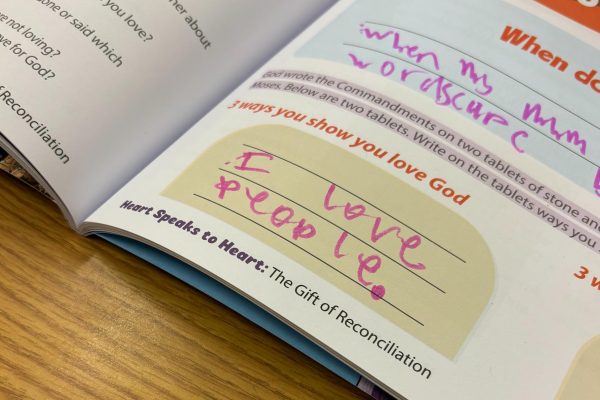 her about
you love?
one or said which
re not loving?
ve for God?
of Reconciliation
When do
when my mum
wordscure
God wrote the Commandments on two tablets of stone and
Moses. Below are two tablets. Write on the tablets ways you
3 ways you show you love God
I love
people.
3 w
Heart Speaks to Heart: The Gift of Reconciliation